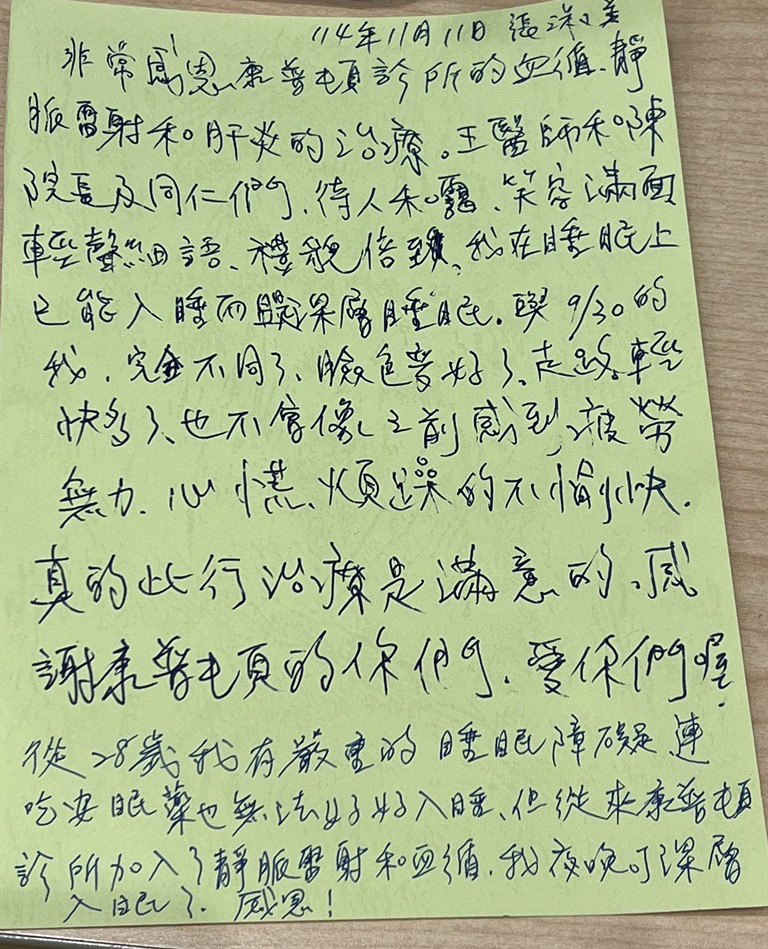 114年11月11日 張淑美
非常感恩康普頓診所的血循、靜
脈雷射和肝炎的治療。王醫師和陳
院長及同仁們、待人和靄、笑容滿面
輕聲細語、禮貌倍致、我在睡眠上
已能入睡而且是深層睡眠。與9/30的
我、完全不同了、臉色變好了、走路輕
快多了、也不會像之前感到疲勞
無力、心慌、煩躁的不愉快。
真的此行治療是滿意的、感
謝康普頓的你們、愛你們喔.
從28歲我有嚴重的睡眠障礙連
吃安眠藥也無法好好入睡、但從來康普頓
診所加入了靜脈雷射和血循、我夜晚可深層
入眠了. 感恩!